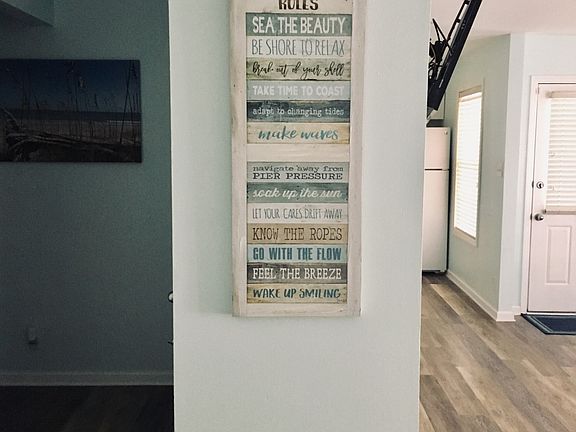 RULES
SEA THE BEAUTY
BE SHORE TO RELAX
break out of your shell
TAKE TIME TO COAST
adapt to changing tides
make waves
navigate away from
PIER PRESSURE
soak up the sun
LET YOUR CARES DRIFT AWAY
KNOW THE ROPES
GO WITH THE FLOW
FEEL THE BREEZE
WAKE UP SMILING